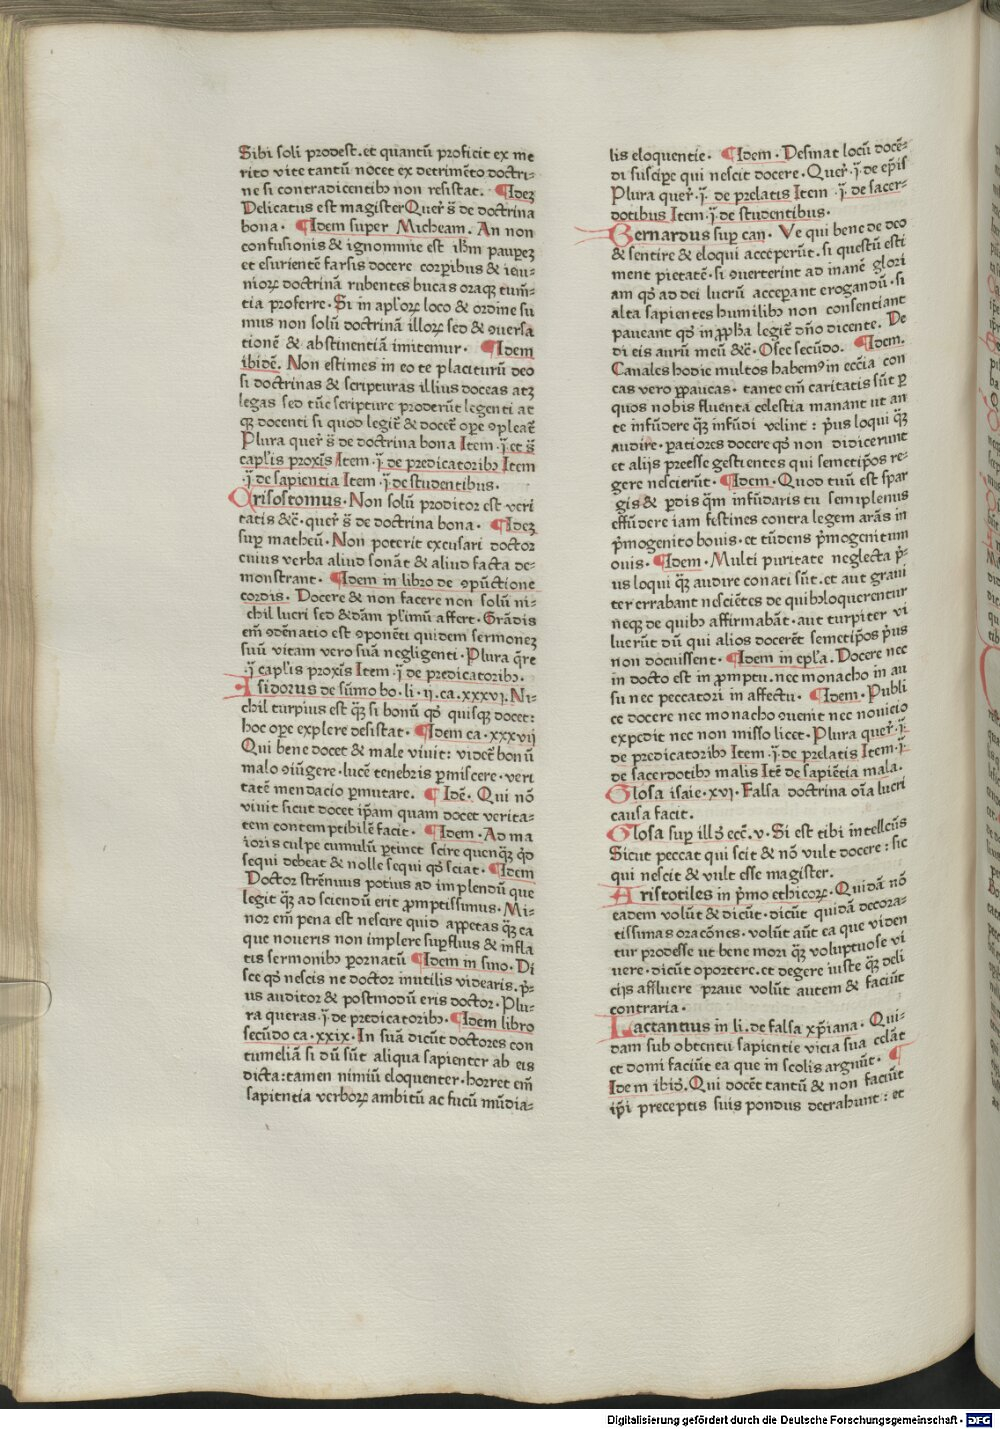 Sibi soli prodest.et quantū proficit ex me
rito vite tantū nocet ex detrimēto doctri-
ne si contradicentibꝫ non resistat. ¶Ideꝫ
Delicatus est magister Quer̄ s̄ de doctrina
bona. ¶Idem super Micheam. An non
confusionis & ignominie est ihm̄ pauperꝫ
et esurientē farsis docere corꝑibus & ieiu-
nioꝝ doctrinā rubentes bucas oraqꝫ tum̄-
tia proferre. Si in apl'oꝝ loco & ordine su
mus non solū doctrinā illoꝝ sed & ꝯuersa
tionē & abstinentiā imitemur. ¶Idem
ibidē. Non estimes in eo te placiturū deo
si doctrinas & scripturas illius doceas atꝫ
legas sed tūc scripture proderūt legenti at
qꝫ docenti si quod legit̄ & docet̄ oꝑe ꝯpleat̄
Plura quer̄ s̄ de doctrina bona Item .ī.et s̄
capl'is proxīs Item .ī. de predicatoribꝫ Item
.ī. de sapientia Item .ī. de studentibus.
Crisostomus. Non solū proditor est veri
tatis &c̄. quer̄ s̄ de doctrina bona. ¶Idez
suꝑ matheū. Non poterit excusari doctor
cuius verba aliud sonāt & aliud facta de-
monstrant. ¶Idem in libro de ꝯpūctione
cordis. Docere & non facere non solū ni-
chil lucri sed & dām pl'imū affert. Grādis
em̄ ꝯdēnatio est ꝯponēti quidem sermonez
suū vitam vero suā negligenti. Plura q̄re
.ī capl'is proxīs Item .ī. de predicatoribꝫ.
Isidorus de sūmo bo.li.ij.ca.xxxvj. Ni-
chil turpius est qꝫ̄ si bonū qd' quisqꝫ docet:
hoc oꝑe explere desistat. ¶Idem ca.xxxvij
Qui bene docet & male viuit: videt̄ bonū
malo ꝯiūgere.lucē tenebris ꝑmiscere.veri
tatē mendacio ꝑmutare. ¶Idē. Qui nō
viuit sicut docet ip̄am quam docet verita-
tem contemptibilē facit. ¶Idem. Ad ma
ioris culpe cumulū ꝑtinet scire quenqꝫ̄ qd'
sequi debeat & nolle sequi qd' sciat. ¶Idem
Doctor strēnuus potius ad implendū que
legit qꝫ̄ ad sciendū erit ꝓmptissimus. Mi-
nor em̄ pena est nescire quid appetas qꝫ̄ ea
que noueris non implere suꝑfluis & infla
tis sermonibꝫ ꝑornatū ¶Idem in sino. Di
sce qd' nescis ne doctor inutilis videaris.p̄-
us auditor & postmodū eris doctor. Plu-
ra queras.ī. de predicatoribꝫ. ¶Idem libro
secūdo ca.xxix. In suā dicūt doctores con
tumeliā si dū sūt aliqua sapienter ab eis
dicta:tamen nimiū eloquenter.horret em̄
sapientia verboꝝ ambitū ac fucū mūdia-
lis eloquentie. ¶Idem. Desinat locū docē-
di suscipe qui nescit docere. Quer̄.ī. de ep̄is
Plura quer̄.ī. de prelatis Item .ī. de sacer-
dotibus Item .ī. de studentibus.
Bernardus suꝑ can. Ve qui bene de deo
& sentire & eloqui acceperūt.si questū esti
ment pietatē.si ꝯuerterint ad inanē glori
am qd' ad dei lucrū acceꝑant erogandū.si
alta sapientes humilibꝫ non consentiant
paueant qd' in ꝓph̄a legit̄ dn̄o dicente. De
di eis aurū meū &c̄. Osee secūdo. ¶Idem.
Canales hodie multos habemꝰ in ecc̄ia con
cas vero ꝑpaucas. tante em̄ caritatis sūt ꝑ
quos nobis fluenta celestia manant ut an
te infūdere qꝫ̄ infūdi velint: p̄us loqui qꝫ̄
audire.ꝑatiores docere qd' non didicerunt
et alijs preesse gestientes qui semetip̄os re-
gere nescierūt. ¶Idem. Quod tuū est spar
gis & ꝑdis qm̄ infūdaris tu semiplenus
effūdere iam festines contra legem arās in
p̄mogenito bouis.et tūdens p̄mogenitum
ouis. ¶Idem. Multi puritate neglecta p̄-
us loqui qꝫ̄ audire conati sūt.et aut graui
ter errabant nesciētes de quibꝫ loquerentur
neqꝫ de quibꝫ affirmabāt.aut turpiter vi
luerūt dū qui alios docerēt semetip̄os p̄us
non docuissent. ¶Idem in epl'a. Docere nec
in docto est in ꝓmptu.nec monacho in au
su nec peccatori in affectu. ¶Idem. Publi
ce docere nec monacho ꝯuenit nec nouicio
expedit nec non misso licet. Plura quer̄.ī.
de predicatoribꝫ Item .ī. de prelatis Item .ī.
de sacerdotibꝫ malis Itē de sapiētia mala.
Glosa isaie.xvj. Falsa doctrina oīa lucri
causa facit.
Glosa suꝑ ill'd ecc̄.v. Si est tibi intellcūs
Sicut peccat qui scit & nō vult docere: sic
qui nescit & vult esse magister.
Aristotiles in p̄mo ethicoꝝ. Quidā nō
eadem volūt & dicūt.dicūt quidā decora-
tissimas oracōnes.volūt aūt ea que viden
tur prodesse ut bene mori qꝫ̄ voluptuose vi
uere.dicūt oportere.et degere iuste qꝫ̄ deli
cijs affluere praue volūt autem & faciūt
contraria.
Lactantius in li.de falsa xp̄iana. Qui-
dam sub obtentu sapientie vicia sua celāt
et domi faciūt ea que in scolis arguūt. ¶
Idem ibid'. Qui docēt tantū & non faciūt
ip̄i preceptis suis pondus detrahunt: et
Digitalisierung gefördert durch die Deutsche Forschungsgemeinschaft - DFG